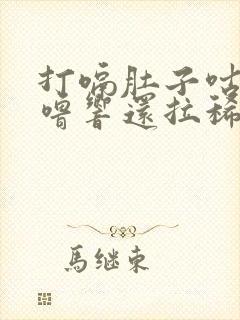 打嗝肚子咕
噜響還拉稀
馬继東